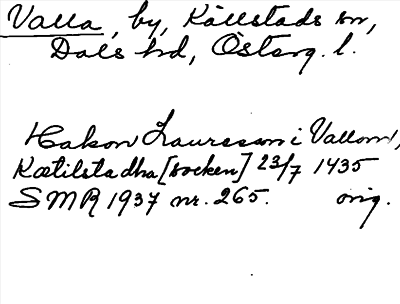 Valla, by, Källstads sn,
Dals hd, Österg. l.
Hakon Laurensson i Vallom,
Kætilstadha [socken] 23/7 1435
SMR 1937 nr. 265. orig.